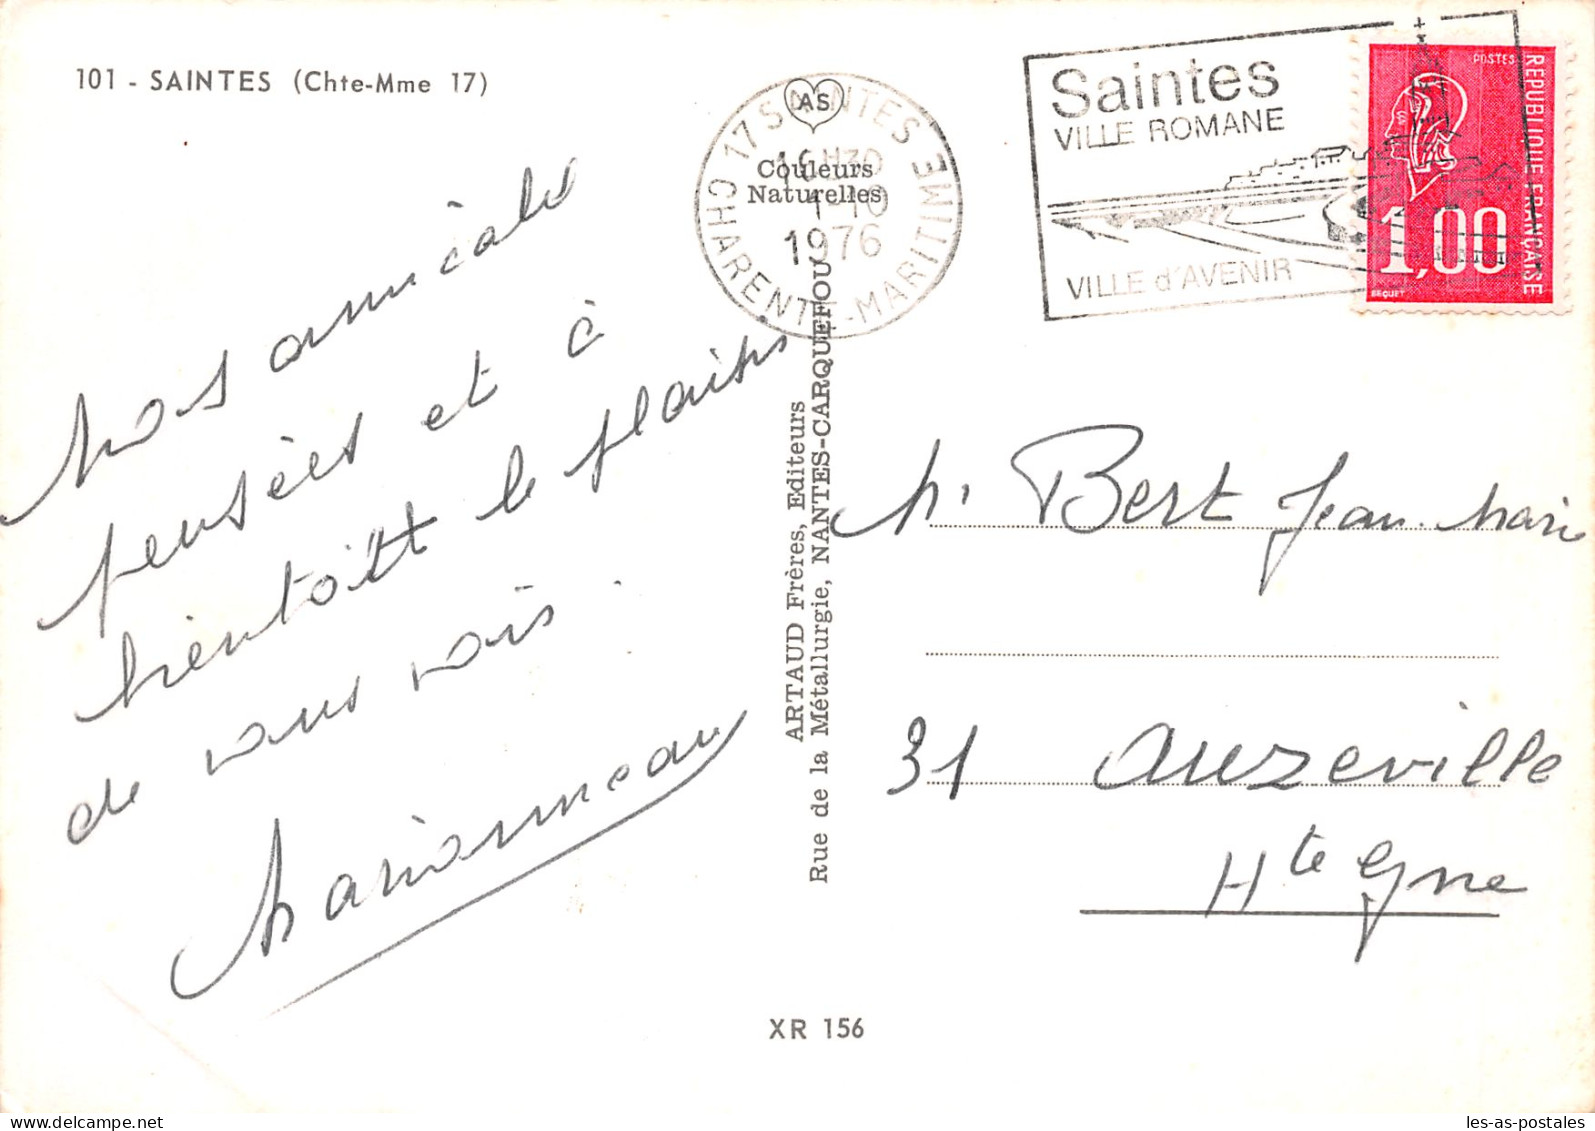 101 - SAINTES (Chte-Mme 17)
Nos amicales
pensées et à
bientôtt le plaisir
de vous voir.
Marionneau
AS
Couleurs
Naturelles
17 SAINTES
16H30
1-10
1976
CHARENTE-MARITIME
Saintes
VILLE ROMANE
VILLE d'AVENIR
POSTES
REPUBLIQUE FRANÇAISE
1,00
BEQUET
ARTAUD Frères, Editeurs
Rue de la Métallurgie, NANTES-CARQUEFOU
M. Bert Jean-Marie
31 Auzeville
Hte Gne
XR 156
les-as-postales.com